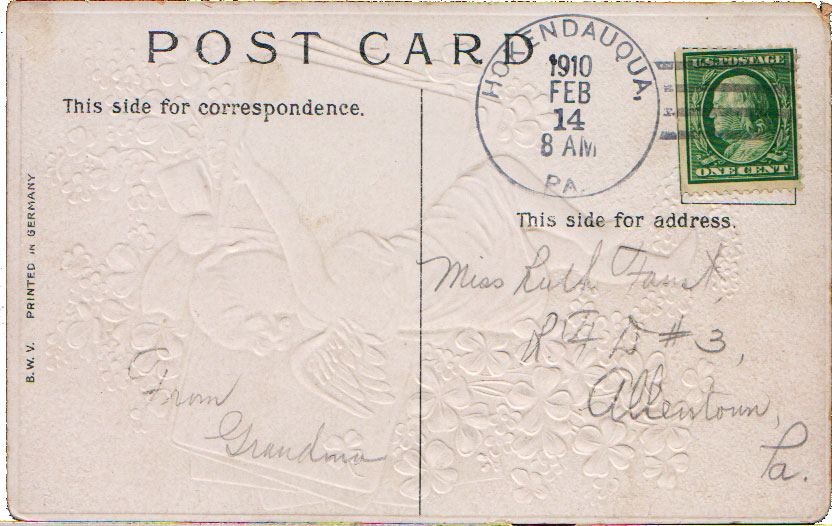 POST CARD
This side for correspondence.
HOKENDAUQUA,
1910
FEB
14
8 AM
PA.
U.S. POSTAGE
ONE CENT
This side for address.
B.W.V. PRINTED IN GERMANY
Miss Ruth Faust,
R F D # 3,
Allentown,
Pa.
From
Grandma